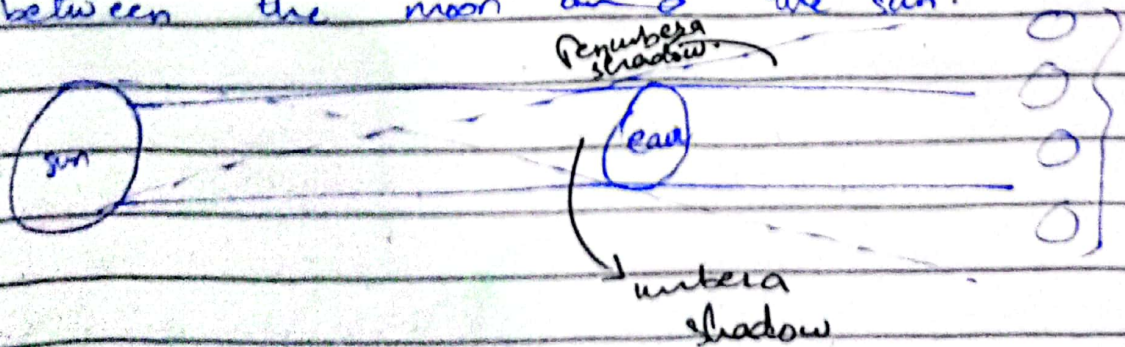 between the moon and the sun.
Penumbera
shadow.
sun
eau
umbera
shadow